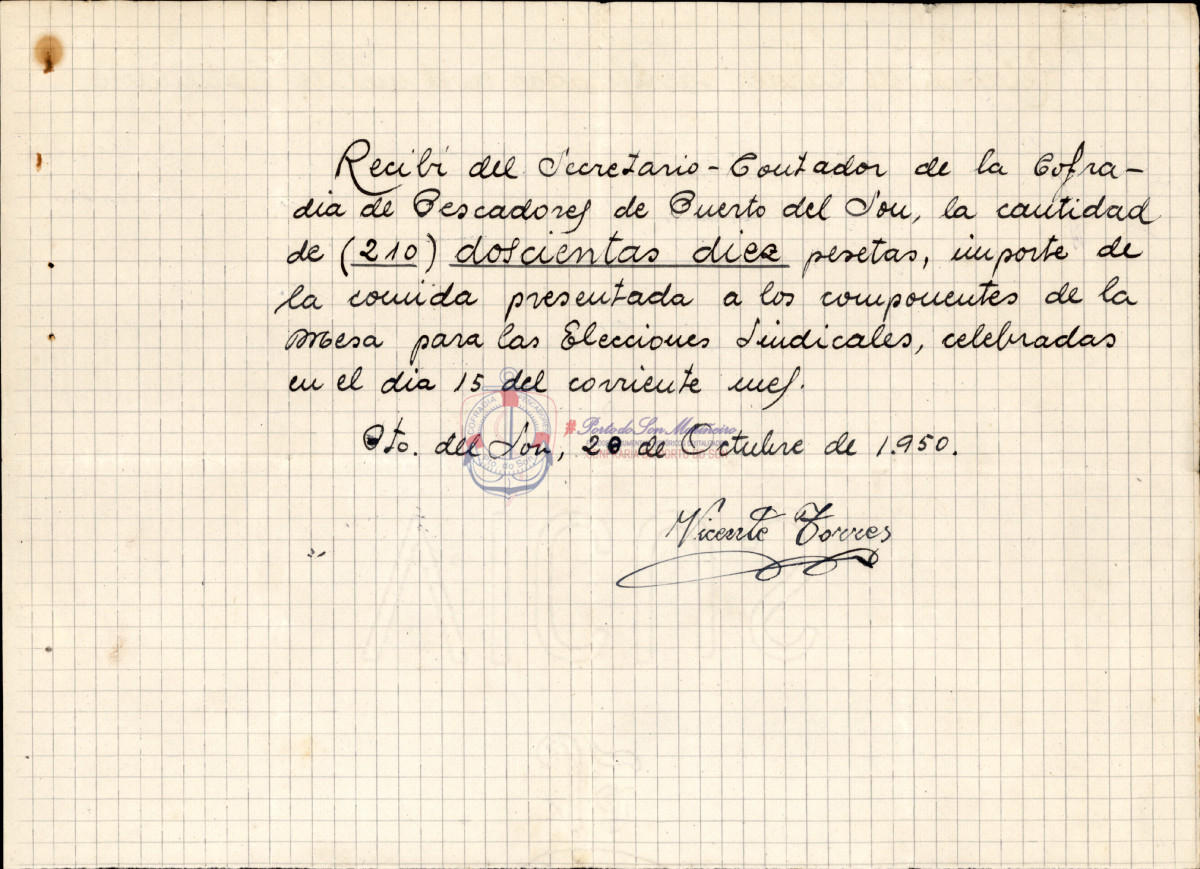 Recibí del Secretario-Contador de la Cofra-
dia de Pescadores de Puerto del Son, la cantidad
de (210) doscientas diez pesetas, importe de
la comida presentada a los componentes de la
Mesa para las Elecciones Sindicales, celebradas
en el dia 15 del corriente mes.
COFRADIA PESCADORES
# Porto do Son Mariñeiro
Pto. del Son, 20 de Octubre de 1.950.
Vicente Torres